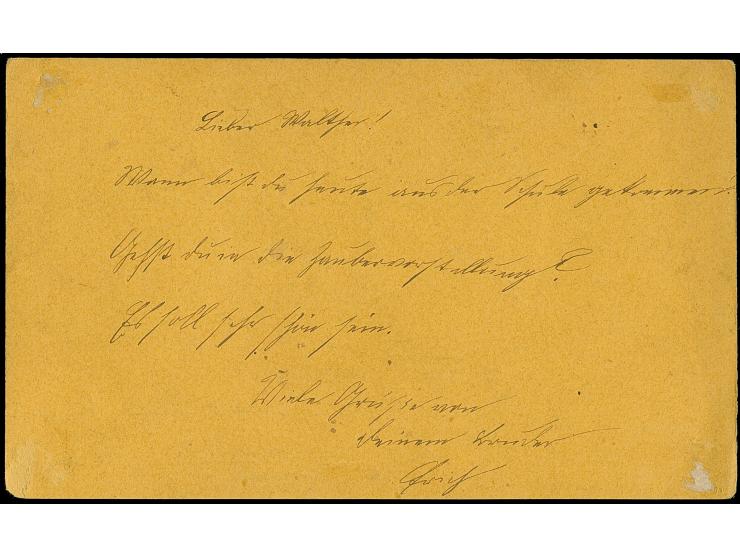 Lieber Walther!
Wann bist du heute aus der Schule gekommen?
Gehst du in die Zaubervorstellung?
Es soll sehr schön sein.
Viele Grüße von
deinem Bruder
Erich